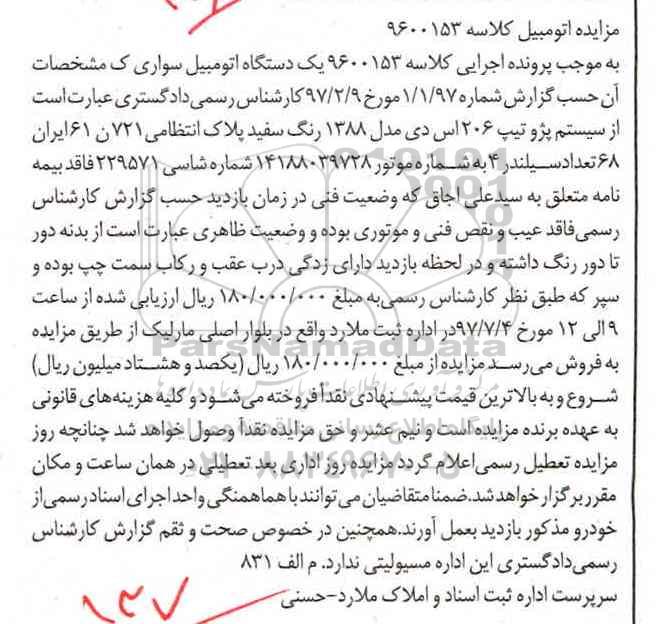 مزایده اتومبیل کلاسه ۹۶۰۰۱۵۳
به موجب پرونده اجرایی کلاسه ۹۶۰۰۱۵۳ یک دستگاه اتومبیل سواری ک مشخصات
آن حسب گزارش شماره ۱/۱/۹۷ مورخ ۹۷/۲/۹ کارشناس رسمی دادگستری عبارت است
از سیستم پژو تیپ ۲۰۶ اس دی مدل ۱۳۸۸ رنگ سفید پلاک انتظامی ۷۲۱ ن ۶۱ ایران
۶۸ تعداد سیلندر ۴ به شماره موتور ۱۴۱۸۸۰۳۹۷۲۸ شماره شاسی ۲۲۹۵۷۱ فاقد بیمه
نامه متعلق به سیدعلی اجاق که وضعیت فنی در زمان بازدید حسب گزارش کارشناس
رسمی فاقد عیب و نقص فنی و موتوری بوده و وضعیت ظاهری عبارت است از بدنه دور
تا دور رنگ داشته و در لحظه بازدید دارای زدگی درب عقب و رکاب سمت چپ بوده و
سپر که طبق نظر کارشناس رسمی به مبلغ ۱۸۰/۰۰۰/۰۰۰ ریال ارزیابی شده از ساعت
۹ الی ۱۲ مورخ ۹۷/۷/۴ در اداره ثبت ملارد واقع در بلوار اصلی مارلیک از طریق مزایده
به فروش می‌رسد مزایده از مبلغ ۱۸۰/۰۰۰/۰۰۰ ریال (یکصد و هشتاد میلیون ریال)
شروع و به بالاترین قیمت پیشنهادی نقدأ فروخته می‌شود و کلیه هزینه‌های قانونی
به عهده برنده مزایده است و نیم عشر و حق مزایده نقدأ وصول خواهد شد چنانچه روز
مزایده تعطیل رسمی اعلام گردد مزایده روز اداری بعد تعطیلی در همان ساعت و مکان
مقرر برگزار خواهد شد. ضمنا متقاضیان می‌توانند با هماهنگی واحد اجرای اسناد رسمی از
خودرو مذکور بازدید بعمل آورند. همچنین در خصوص صحت و ثقم گزارش کارشناس
رسمی دادگستری این اداره مسیولیتی ندارد. م الف ۸۳۱
سرپرست اداره ثبت اسناد و املاک ملارد-حسنی
ParsNamadData
۱۳۷